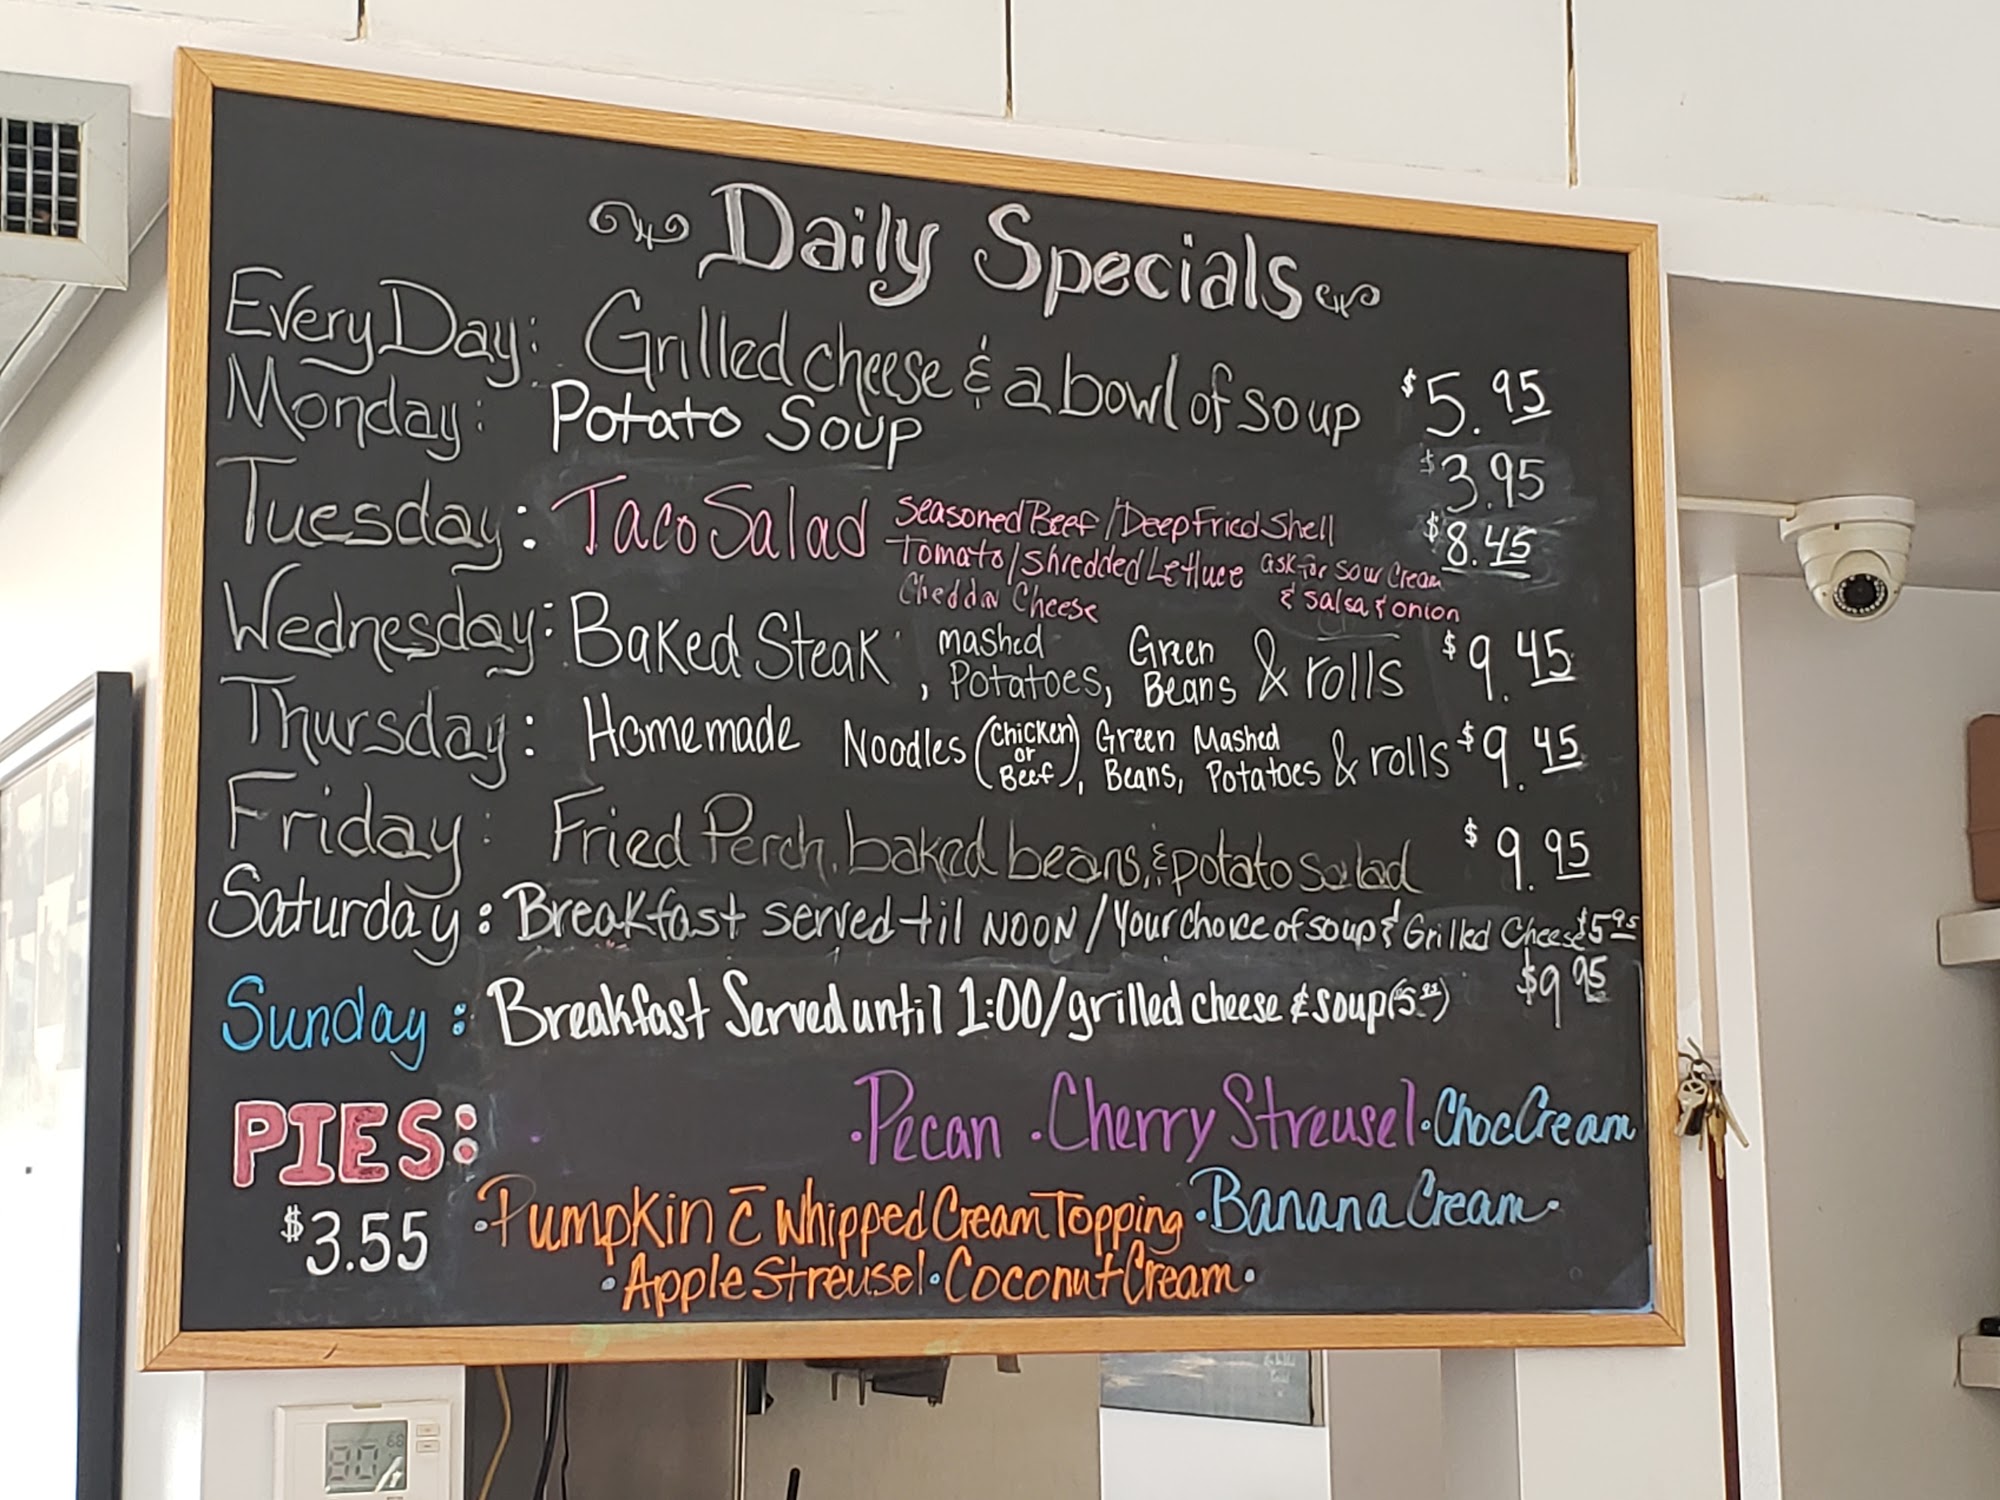 Daily Specials
Every Day: Grilled cheese & a bowl of soup $5.95
Monday: Potato Soup $3.95
Tuesday: Taco Salad Seasoned Beef/Deep Fried Shell $8.45
Tomato/Shredded Lettuce ask for Sour Cream
Cheddar Cheese & Salsa & onion
Wednesday: Baked Steak, Mashed Potatoes, Green Beans & rolls $9.45
Thursday: Homemade Noodles (Chicken or Beef), Green Beans, Mashed Potatoes & rolls $9.45
Friday: Fried Perch, baked beans, & potato salad $9.95
Saturday: Breakfast served til NOON/Your choice of soup & Grilled Cheese $5.95
Sunday: Breakfast Served until 1:00/grilled cheese & soup (5.95) $9.95
PIES: •Pecan •Cherry Streusel •Choc Cream
$3.55 •Pumpkin c̄ Whipped Cream Topping •Banana Cream•
•Apple Streusel•Coconut Cream•